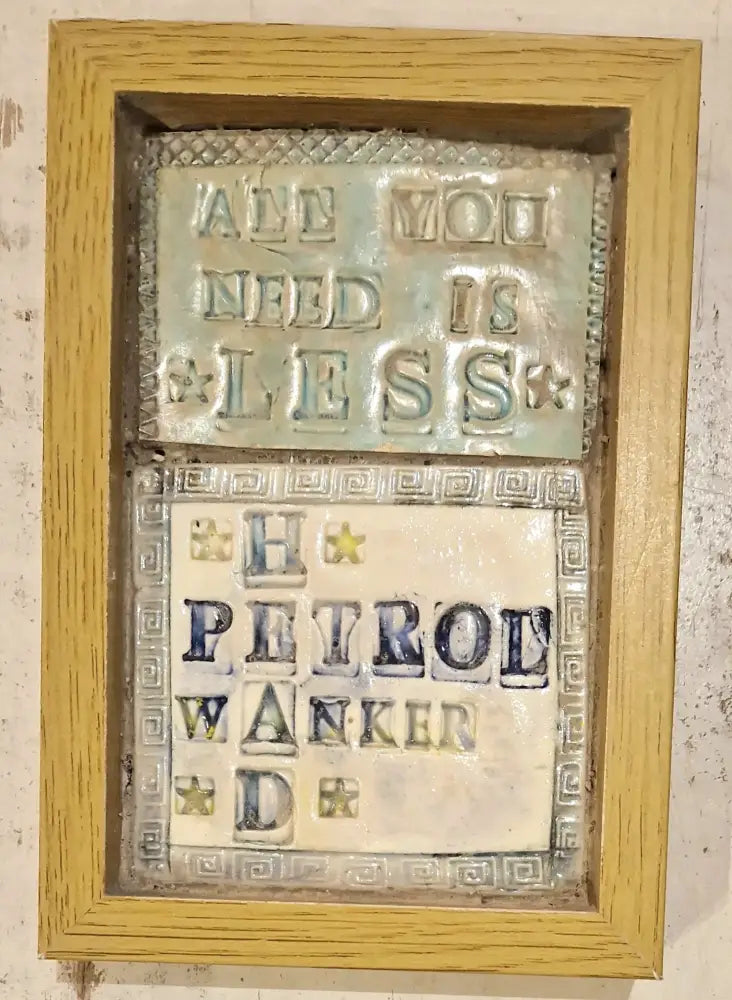 ALL YOU
NEED IS
★LESS★
★ H ★
PETROL
WANKER
★ D ★